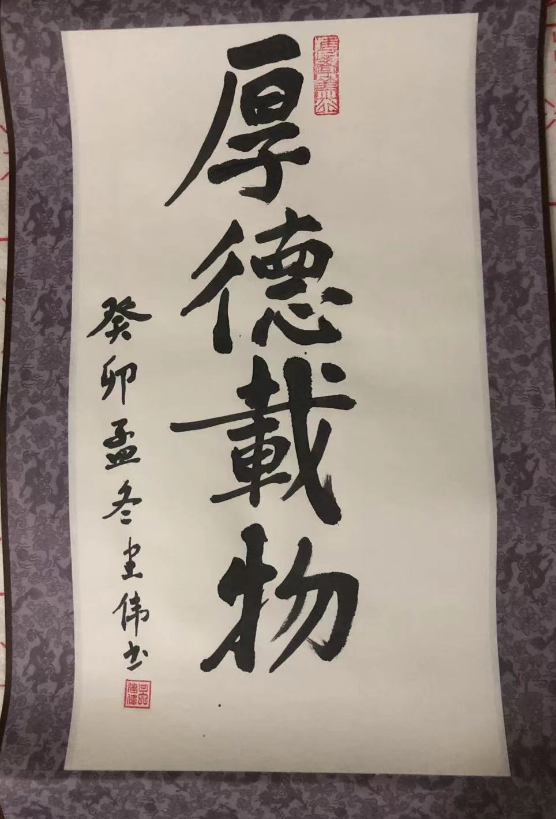 厚德載物
癸卯孟冬
伟书